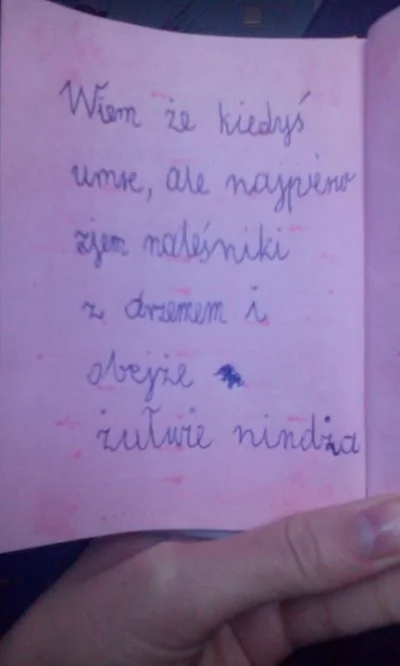 Wiem że kiedyś
umre, ale najpierw
zjem naleśniki
z drzemem i
obejże
żułwie nindża